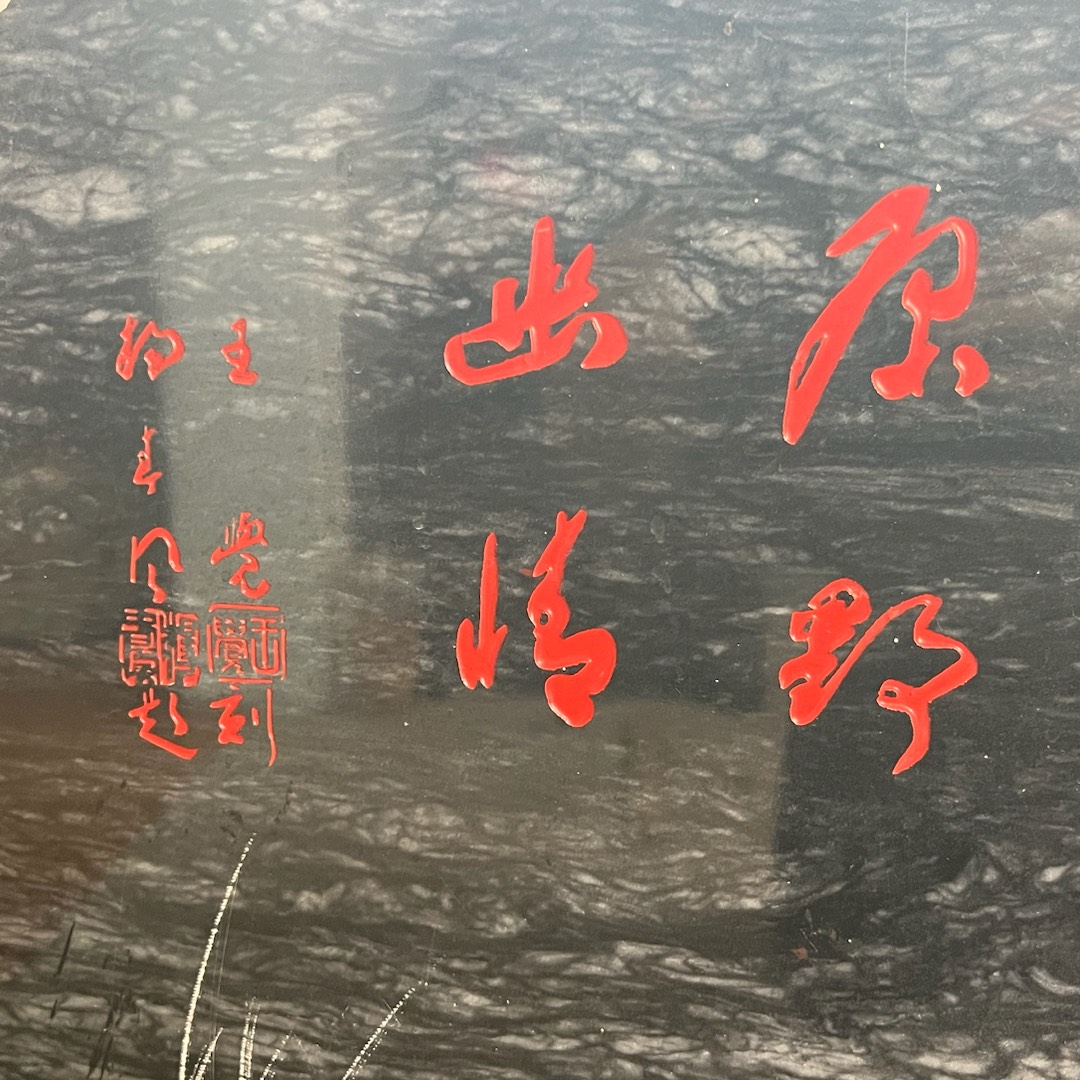 原野
幽情
王覺刻
楊春風題